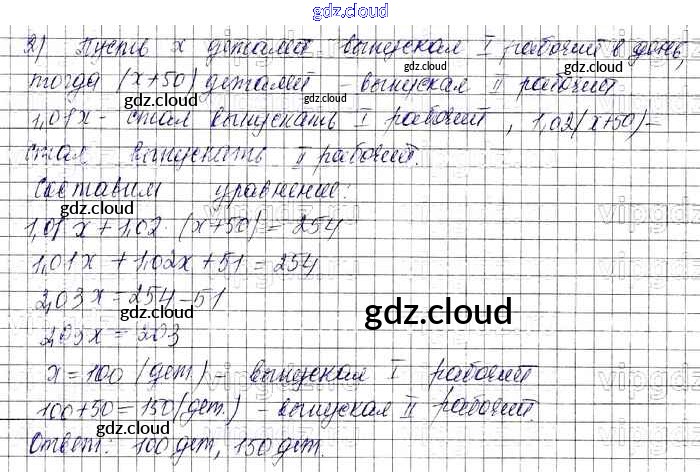 gdz.cloud
2) Пусть x деталей - выпускал I рабочий в день,
тогда (x+50) деталей - выпускал II рабочий
1,01x - стал выпускать I рабочий, 1,02(x+50) -
стал выпускать II рабочий.
Составим уравнение:
1,01x + 1,02 · (x+50) = 254
1,01x + 1,02x + 51 = 254
2,03x = 254 - 51
2,03x = 203
gdz.cloud
x = 100 (дет.) - выпускал I рабочий
100 + 50 = 150 (дет.) - выпускал II рабочий.
Ответ: 100 дет, 150 дет.